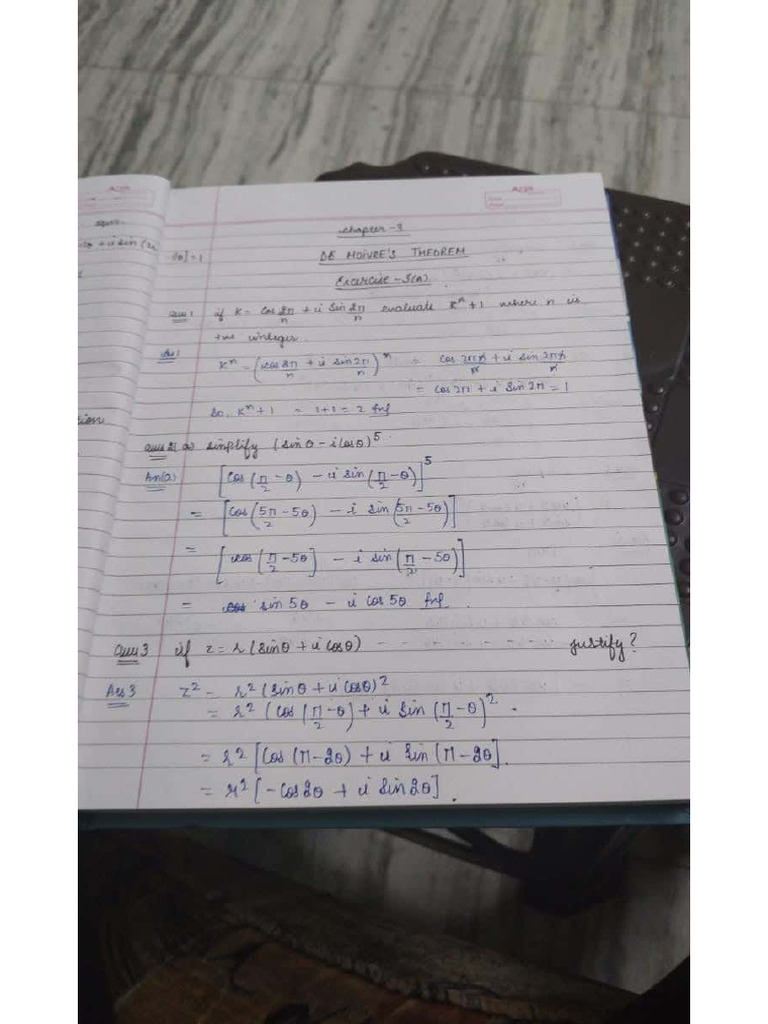 Chapter-3
DE MOIVRE'S THEOREM
Exercise-3(A)
Ques 1 if K = cos 2π/n + i sin 2π/n evaluate Kⁿ+1 where n is
+ve integer
Ans 1 Kⁿ = (cos 2π/n + i sin 2π/n)ⁿ = cos 2πn/n + i sin 2πn/n
= cos 2π + i sin 2π = 1
So, Kⁿ+1 = 1+1 = 2 Ans
Ques 2 (a) simplify (sinθ - i cosθ)⁵
An(a) [cos(π/2 - θ) - i sin(π/2 - θ)]⁵
= [cos(5π/2 - 5θ) - i sin(5π/2 - 5θ)]
= [cos(π/2 - 5θ] - i sin(π/2 - 5θ)]
= sin 5θ - i cos 5θ Ans
Ques 3 if z = r (sinθ + i cosθ) - - - - - - - justify?
Ans 3 z² = r² (sinθ + i cosθ)²
= r² (cos(π/2 - θ) + i sin(π/2 - θ)².
= r² [cos(π - 2θ) + i sin(π - 2θ].
= r² [-cos2θ + i sin2θ].